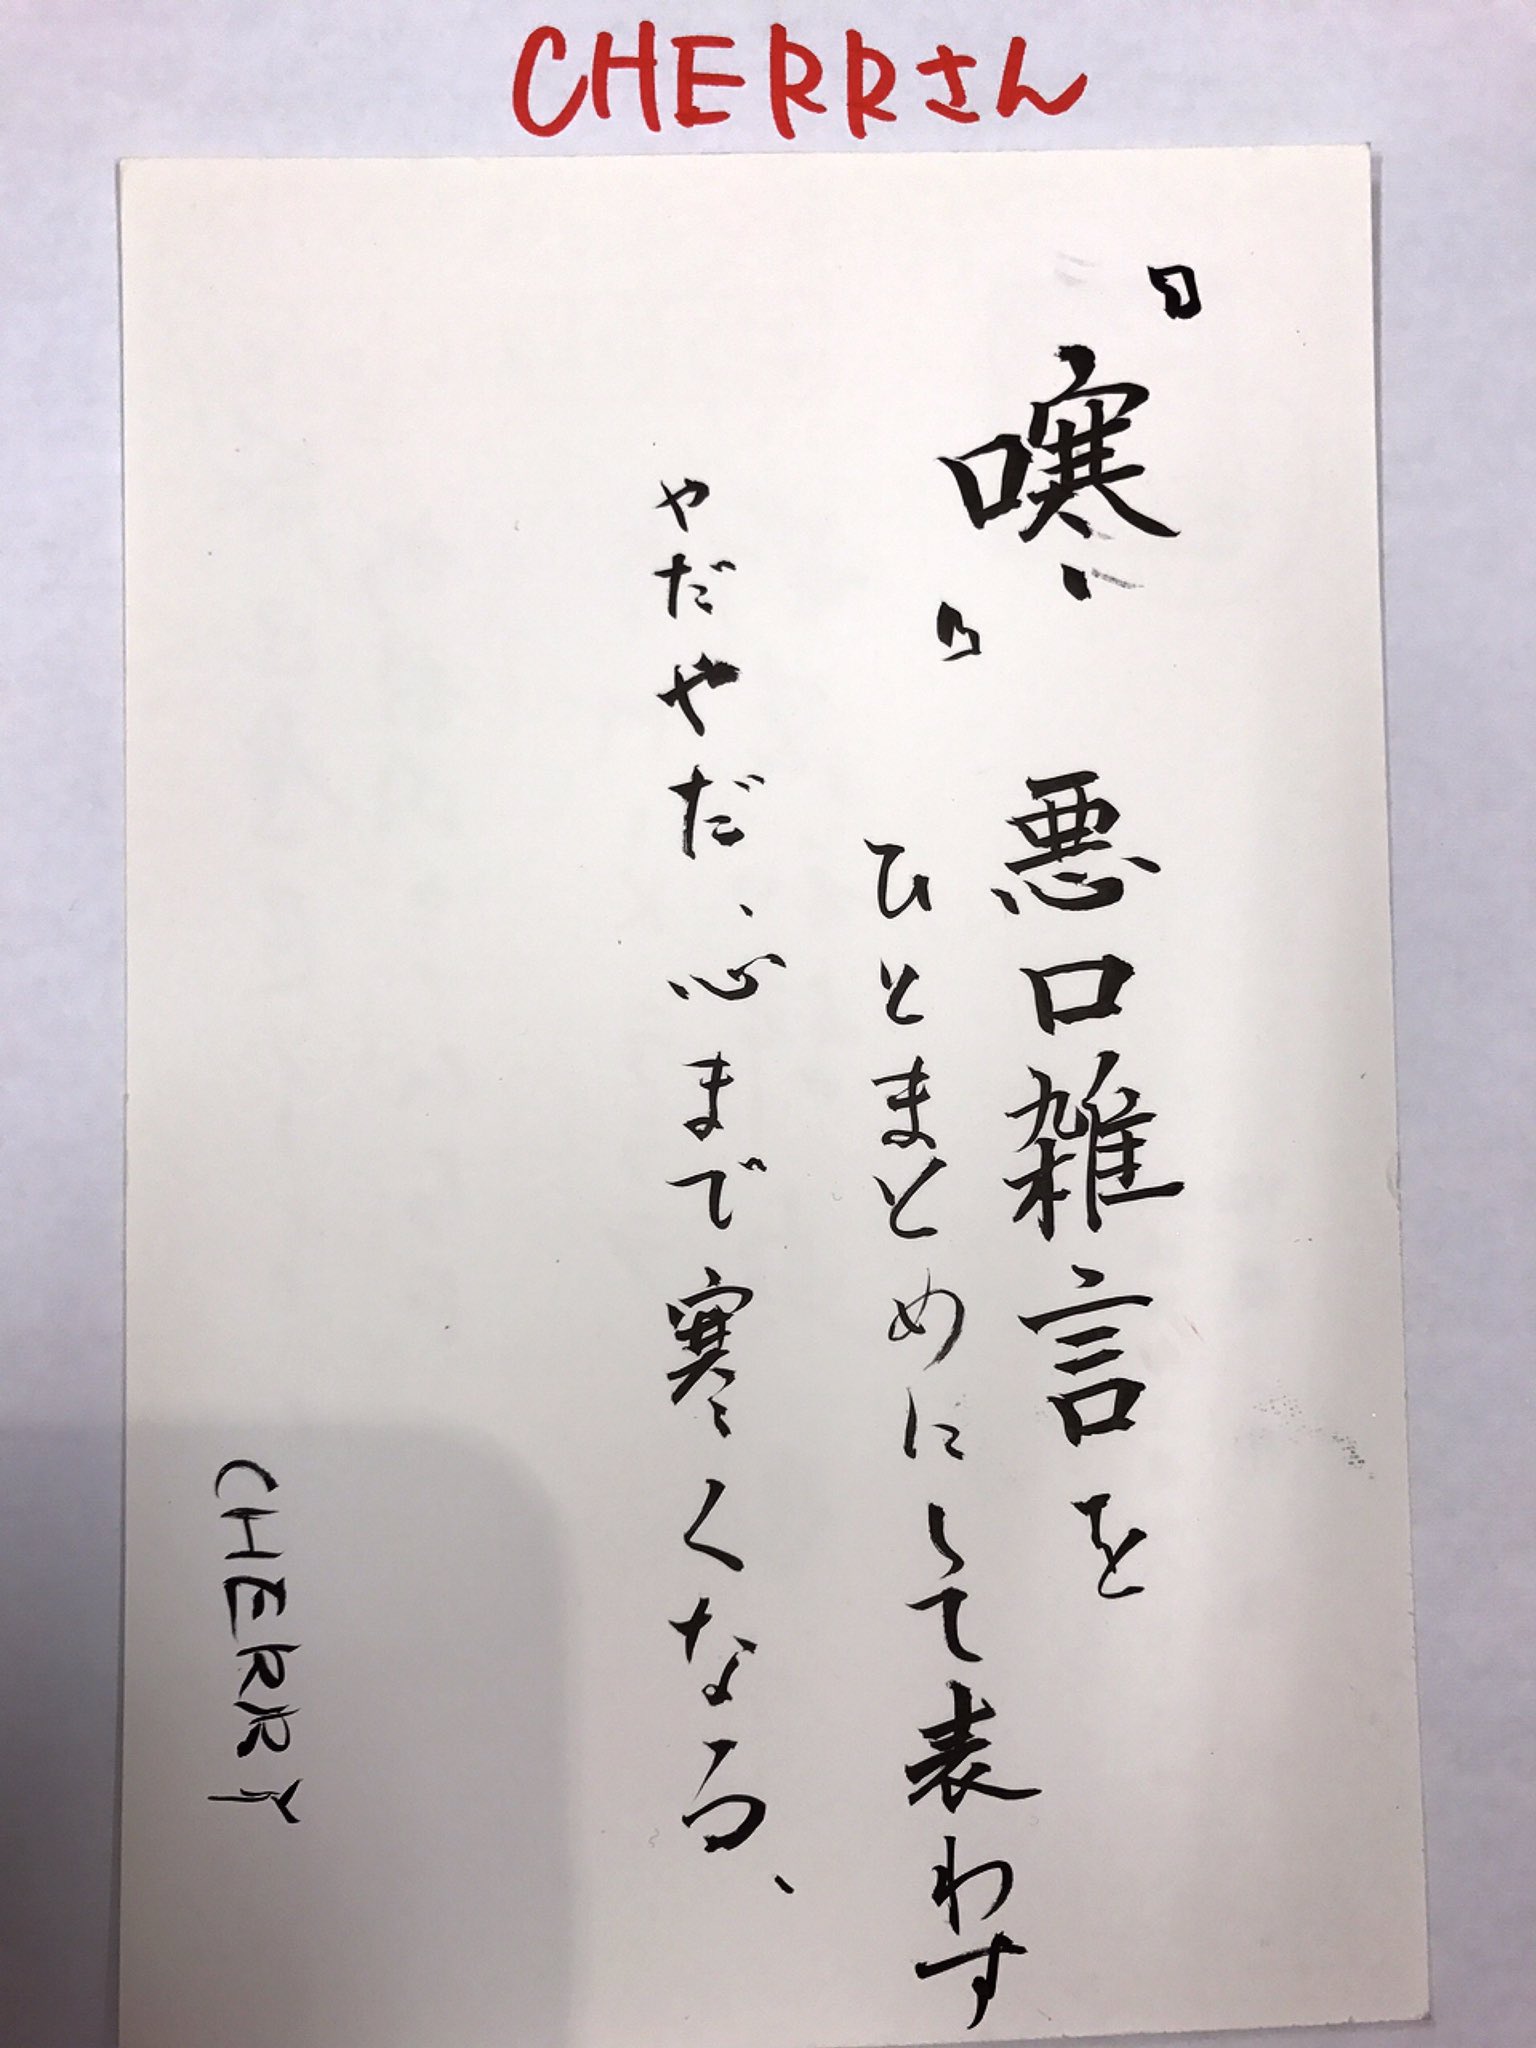 CHERRさん
"口寒" 悪口雑言を
ひとまとめにして表わす
やだやだ、心まで寒くなる、
CHERRY